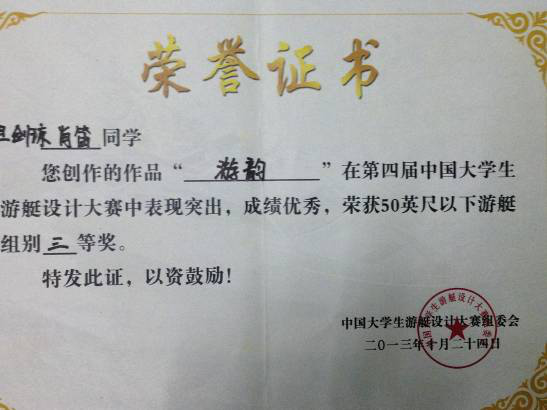 荣誉证书
剑沫 肖笛 同学
您创作的作品“游韵”在第四届中国大学生
游艇设计大赛中表现突出，成绩优秀，荣获50英尺以下游艇
组别三等奖。
特发此证，以资鼓励！
中国大学生游艇设计大赛组委会
二〇一三年十月二十四日